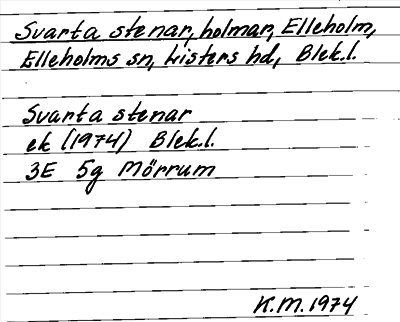 Svarta stenar, holmar, Elleholm,
Elleholms sn, Listers hd, Blek.l.
Svarta stenar
ek (1974) Blek.l.
3E 5g Mörrum
K.M. 1974